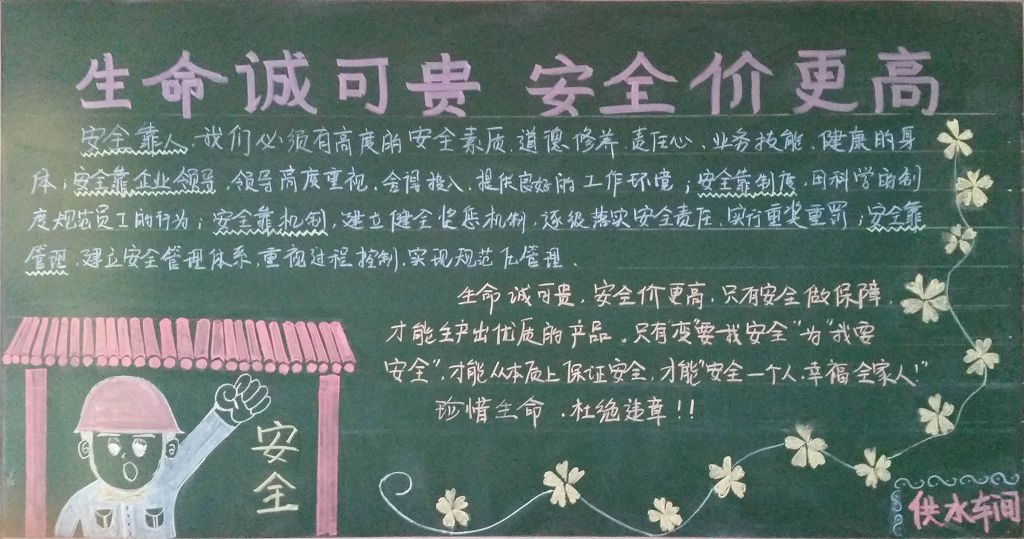 生命诚可贵 安全价更高
安全靠人，我们必须有高度的安全素质、道德修养、责任心、业务技能、健康的身
体；安全靠企业领导，领导高度重视，舍得投入，提供良好的工作环境；安全靠制度，用科学的制
度规范员工的行为；安全靠机制，建立健全奖惩机制，逐级落实安全责任，实行重奖重罚；安全靠
管理，建立安全管理体系，重视过程控制，实现规范化管理．
生命诚可贵，安全价更高，只有安全做保障，
才能生产出优质的产品。只有变"要我安全"为"我要
安全"，才能从本质上保证安全，才能"安全一个人，幸福全家人！"
珍惜生命，杜绝违章！！
安全
供水车间